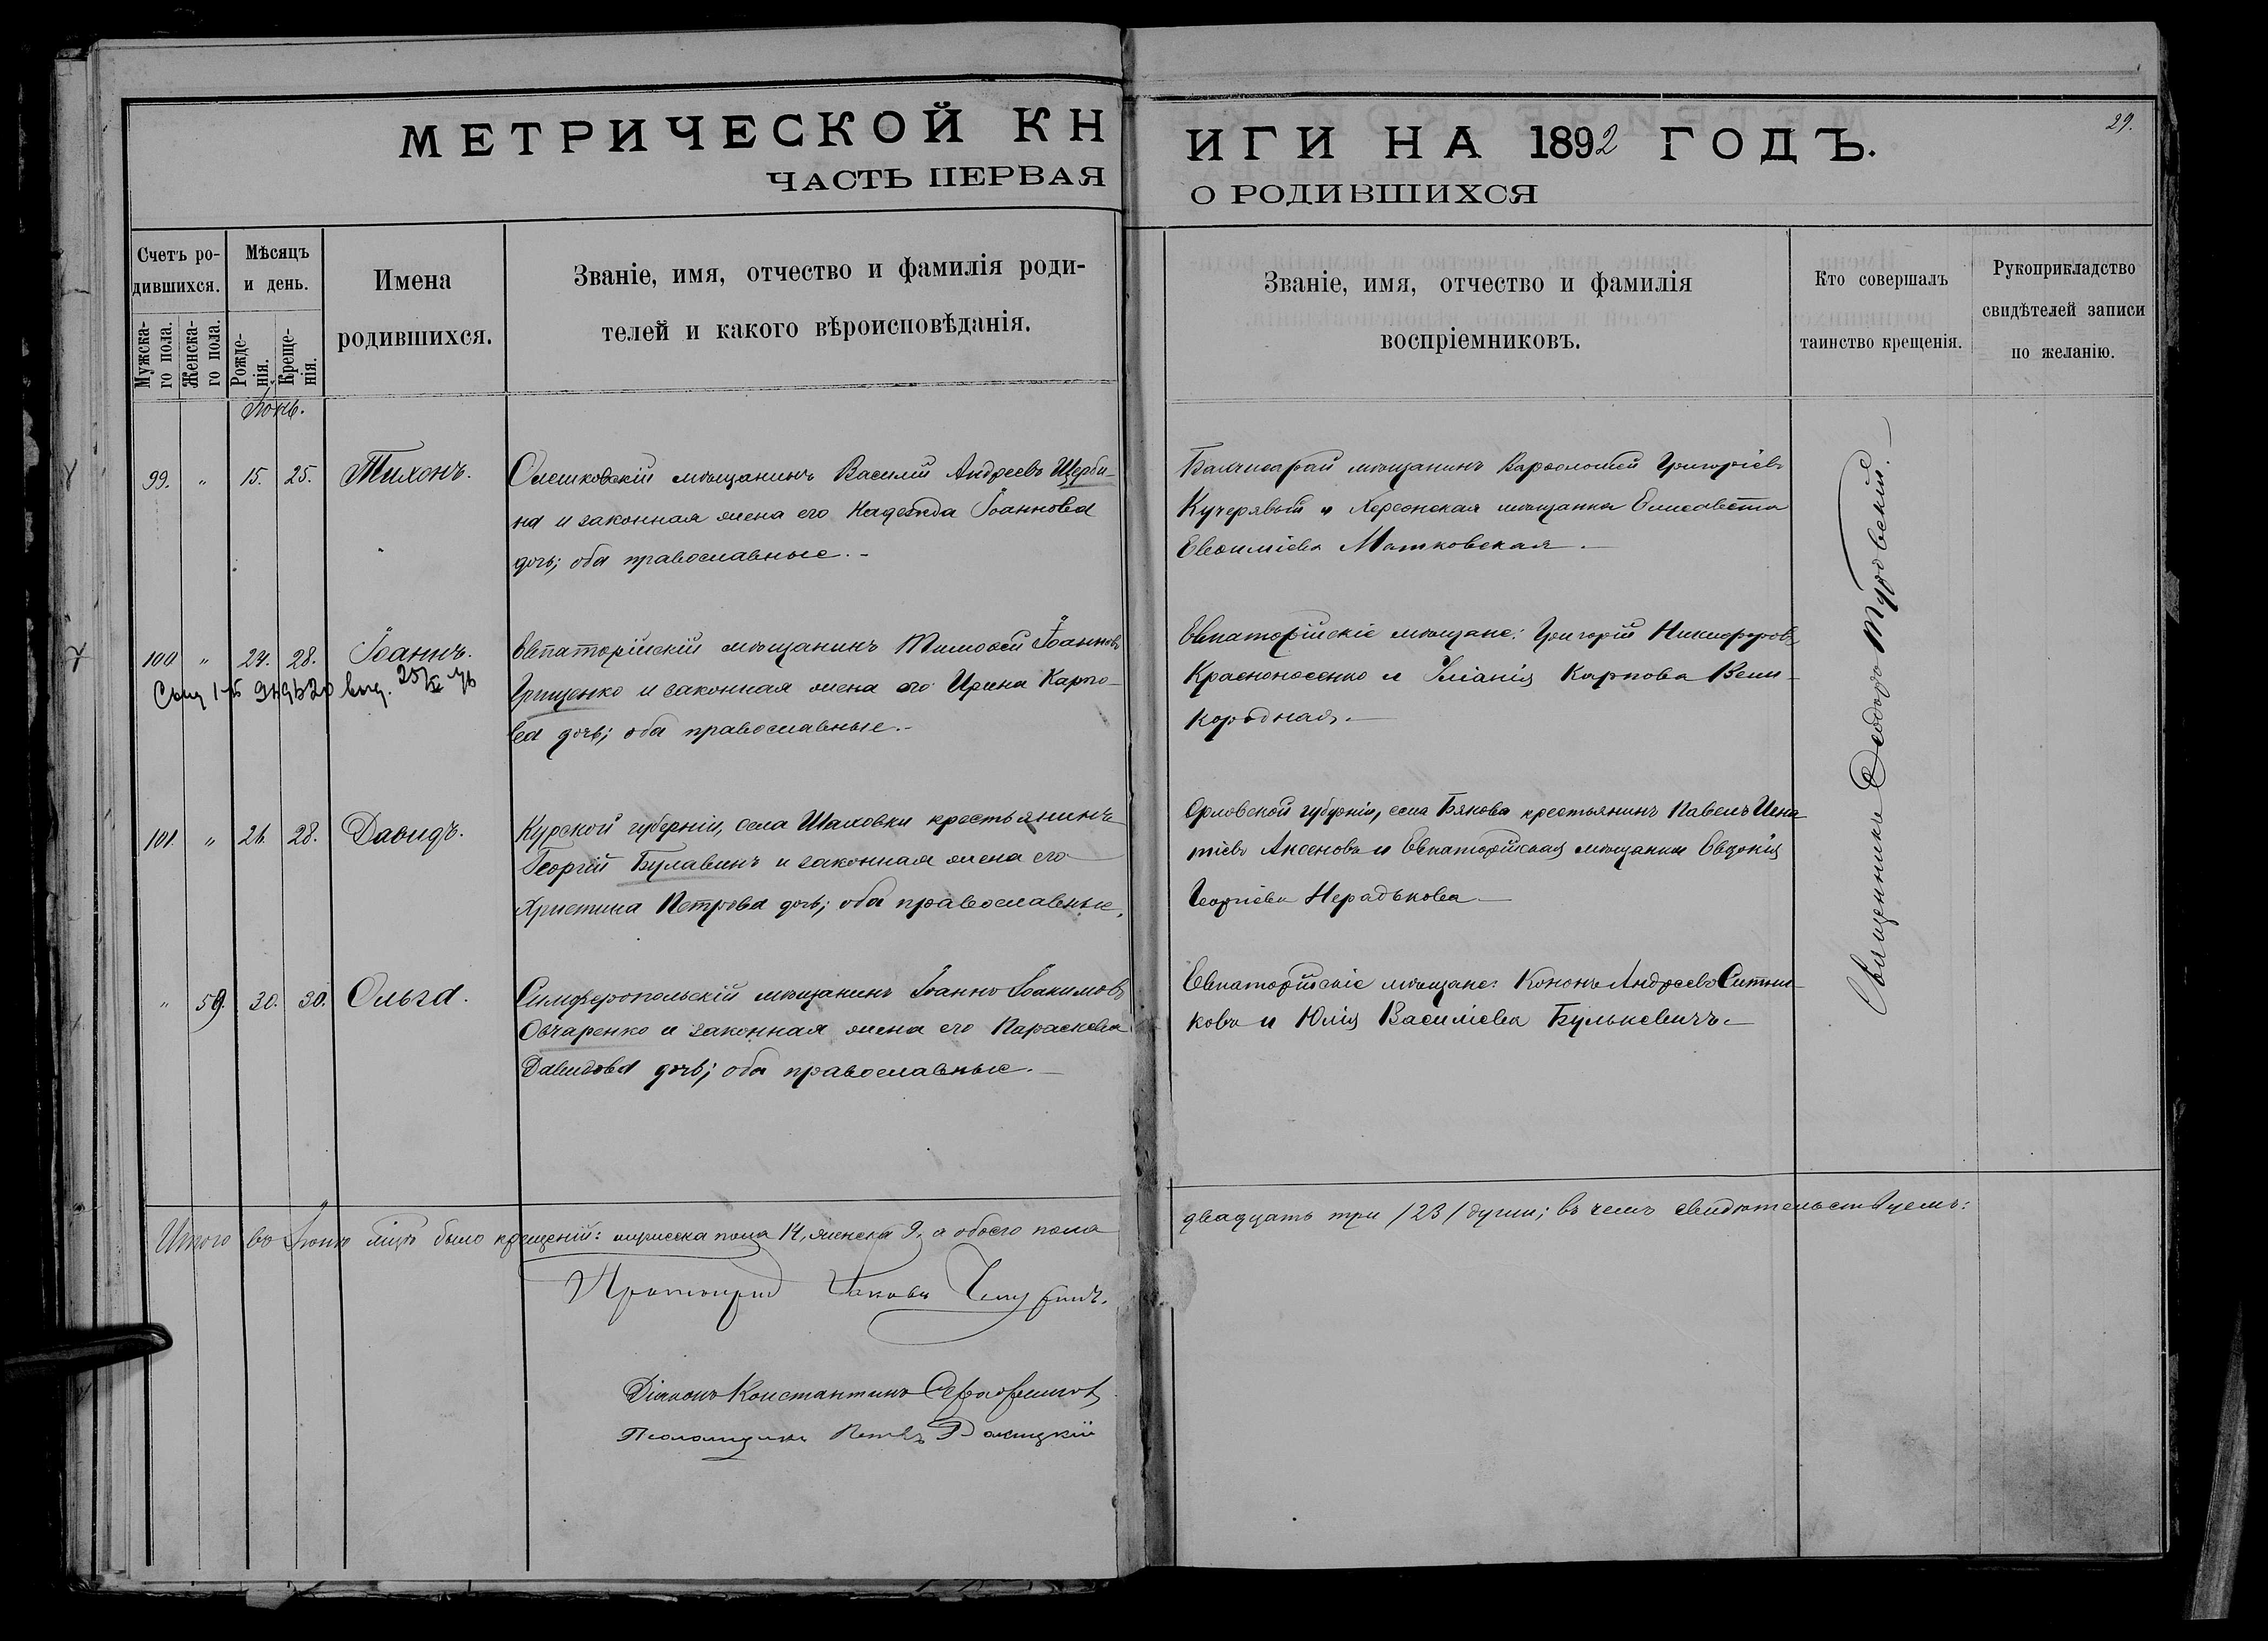 МЕТРИЧЕСКОЙ КНИГИ НА 1892 ГОДЪ.
29.
ЧАСТЬ ПЕРВАЯ О РОДИВШИХСЯ
Счетъ ро-
дившихся.
Мужска-
го пола.
Женска-
го пола.
Мѣсяцъ
и день.
Рожде-
нія.
Креще-
нія.
Имена
родившихся.
Званіе, имя, отчество и фамилія роди-
телей и какого вѣроисповѣданія.
Званіе, имя, отчество и фамилія
воспріемниковъ.
Кто совершалъ
таинство крещенія.
Рукоприкладство
свидѣтелей записи
по желанію.
Іюнь.
99. " 15. 25. Тихонъ.
Олешковскій мѣщанинъ Василій Андреевъ Щерби-
на и законная жена его Надежда Іоаннова
дочь; оба православные.-
мѣщанинъ Варѳоломей Григоріевъ
Кучерявый и Херсонская мѣщанка Елисавета
Евѳиміева Матковская.-
100 " 24. 28. Іоаннъ.
Евпаторійскій мѣщанинъ Тимоѳей Іоанновъ
Грищенко и законная жена его Ирина Карпо-
ва дочь; оба православные.-
Евпаторійскіе мѣщане: Григорій Никифоровъ
Красноносенко и Іуліанія Карпова Вели-
кородная.-
101. " 26. 28. Давидъ.
Курской губерніи, села Шаховки крестьянинъ
Георгій Булавинъ и законная жена его
Христина Петрова дочь; оба православные.
Орловской губерніи, села Бякова крестьянинъ Павелъ Игна-
тіевъ Аксеновъ и Евпаторійская мѣщанка Евдокія
Георгіева Нерадькова-
" 59. 30. 30. Ольга.
Симферопольскій мѣщанинъ Іоаннъ Іоакимовъ
Овчаренко и законная жена его Параскева
Давидова дочь; оба православные.-
Евпаторійскіе мѣщане: Кононъ Андреевъ Ситни-
ковъ и Юлія Василіева Булькевичъ.-
Священникъ Ѳеодоръ Туровскій.-
Итого въ Іюнѣ мцѣ было крещеній: мужеска пола 14, женска 9, а обоего пола двадцать три /23/ души; въ чемъ свидѣтельствуемъ:
Протоіерей Іаковъ Чепуринъ.
Діаконъ Константинъ
Псаломщикъ